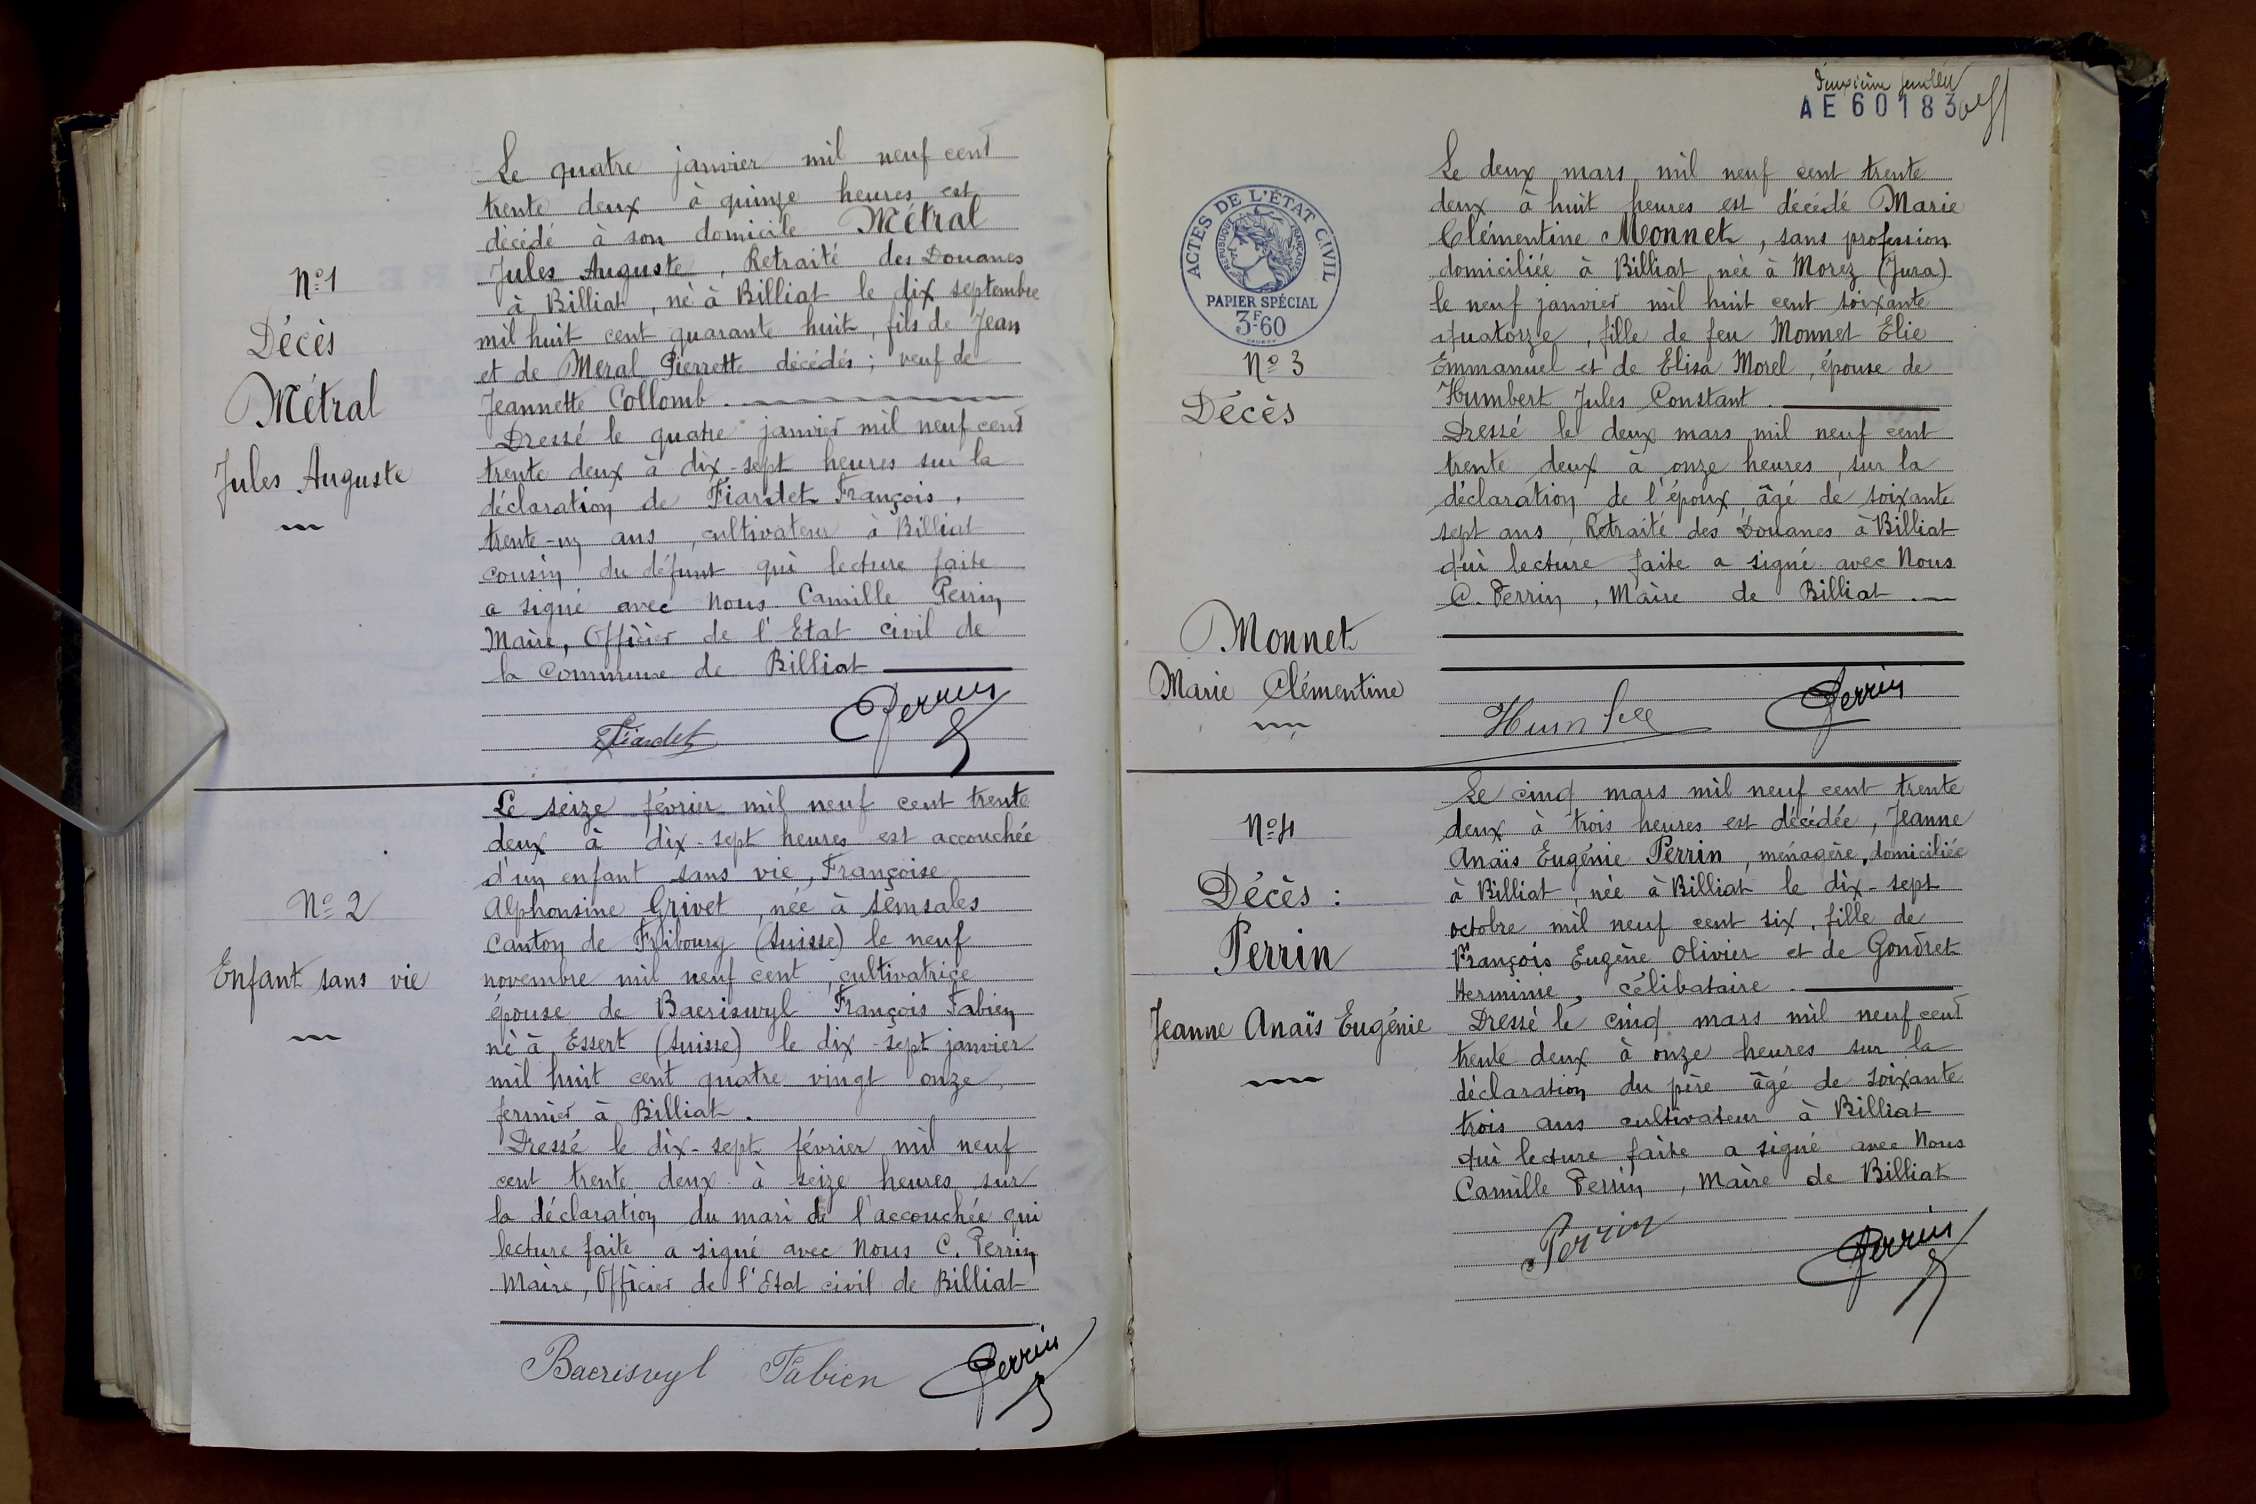 N° 1
Décès
Métral
Jules Auguste
Le quatre janvier mil neuf cent
trente deux à quinze heures est
décédé à son domicile Métral
Jules Auguste, Retraité des Douanes
à Billiat, né à Billiat le dix septembre
mil huit cent quarante huit, fils de Jean
et de Méral Pierrette décédés; veuf de
Jeannette Collomb.
Dressé le quatre janvier mil neuf cent
trente deux à dix-sept heures sur la
déclaration de Fiardet François,
trente-un ans, cultivateur à Billiat
cousin du défunt qui lecture faite
a signé avec Nous Camille Perrin,
Maire, Officier de l'Etat civil de
la Commune de Billiat
Fiardet CPerrin
N° 2
Enfant sans vie
Le seize février mil neuf cent trente
deux à dix-sept heures est accouchée
d'un enfant sans vie, Françoise
Alphonsine Grivet, née à Semsales
canton de Fribourg (Suisse) le neuf
novembre mil neuf cent, cultivatrice
épouse de Baeriswyl François Fabien
né à Essert (Suisse) le dix-sept janvier
mil huit cent quatre vingt onze,
fermier à Billiat.
Dressé le dix-sept février mil neuf
cent trente deux à seize heures sur
la déclaration du mari de l'accouchée qui
lecture faite a signé avec Nous C. Perrin,
Maire, Officier de l'Etat civil de Billiat
Baeriswyl Fabien CPerrin
deuxième feuillet
AE60183
ACTES DE L'ÉTAT CIVIL
RÉPUBLIQUE FRANÇAISE
PAPIER SPÉCIAL
3F60
N° 3
Décès
Monnet
Marie Clémentine
Le deux mars mil neuf cent trente
deux à huit heures est décédé Marie
Clémentine Monnet, sans profession
domiciliée à Billiat née à Morez (Jura)
le neuf janvier mil huit cent soixante
quatorze, fille de feu Monnet Elie
Emmanuel et de Elisa Morel, épouse de
Humbert Jules Constant.
Dressé le deux mars mil neuf cent
trente deux à onze heures, sur la
déclaration de l'époux, âgé de soixante
sept ans, Retraité des Douanes à Billiat
qui lecture faite a signé avec Nous
C. Perrin, Maire de Billiat.
Humbert CPerrin
N° 4
Décès :
Perrin
Jeanne Anaïs Eugénie
Le cinq mars mil neuf cent trente
deux à trois heures est décédée, Jeanne
Anaïs Eugénie Perrin, ménagère, domiciliée
à Billiat, née à Billiat le dix-sept
octobre mil neuf cent six, fille de
François Eugène Olivier et de Gondret
Herminie, célibataire.
Dressé le cinq mars mil neuf cent
trente deux à onze heures sur la
déclaration du père âgé de soixante
trois ans cultivateur à Billiat
qui lecture faite a signé avec Nous
Camille Perrin, Maire de Billiat
Perrin CPerrin